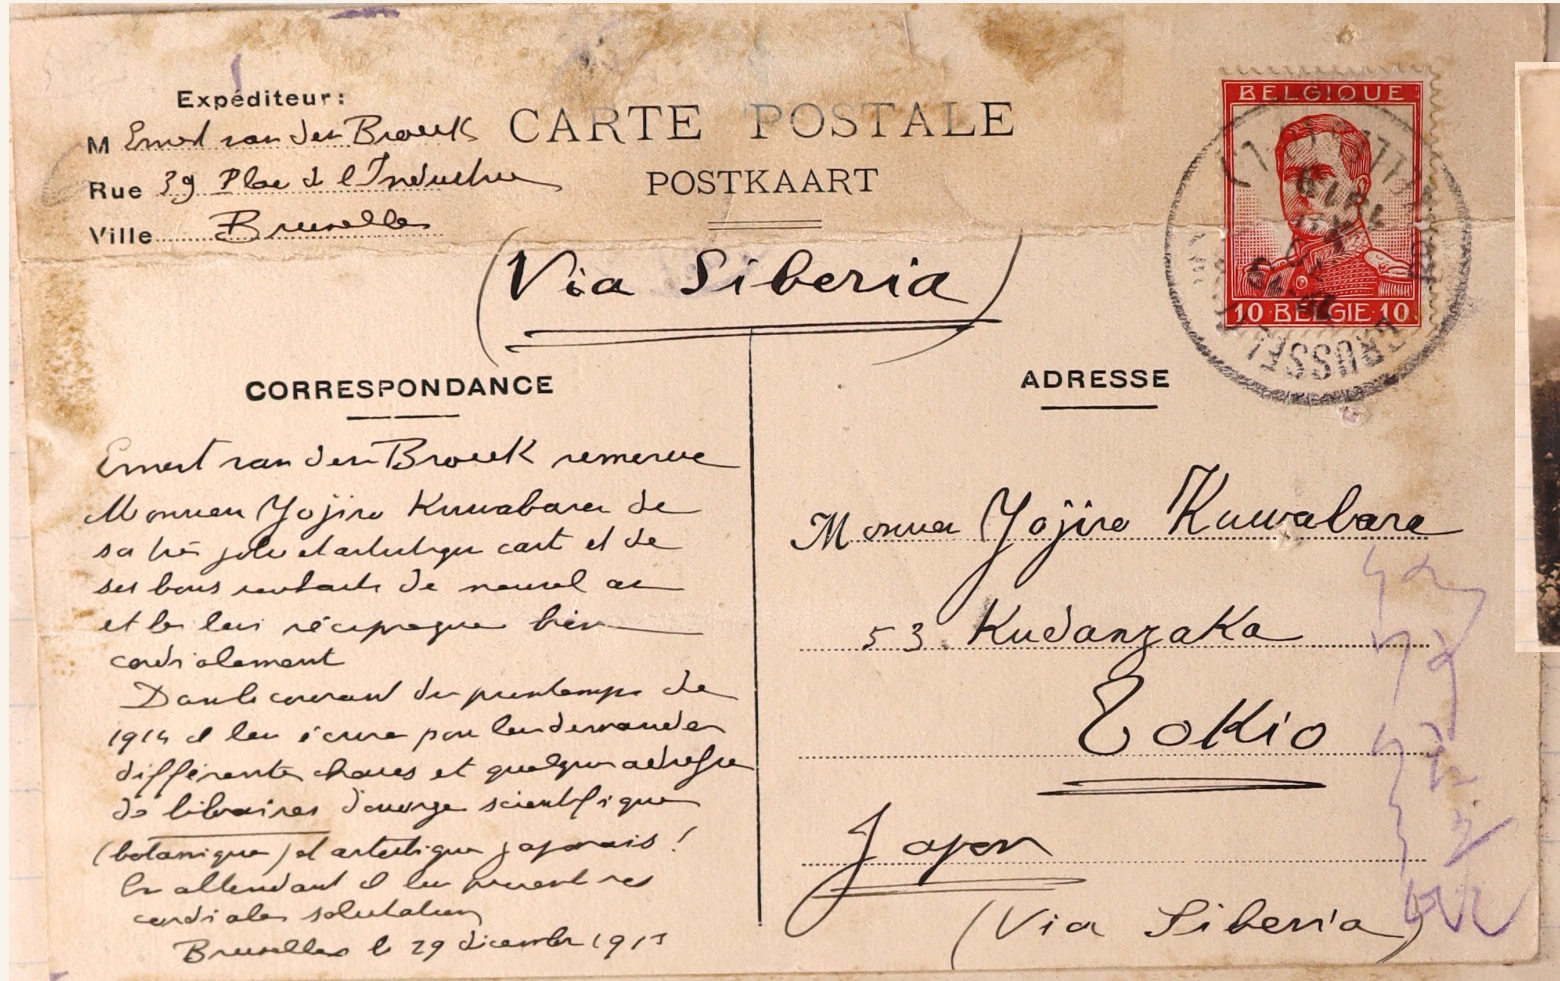 Expéditeur:
M Ernest van den Broeck
Rue 39 Place de l'Industrie
Ville Bruxelles
CARTE POSTALE
POSTKAART
(Via Siberia)
BELGIQUE
10 BELGIE 10
BRUSSEL
CORRESPONDANCE
Ernest van den Broeck remercie
Monsieur Yojiro Kuwabara de
sa très jolie et artistique carte et de
ses bons souhaits de nouvel an
et les lui réciproque bien
cordialement
Dans le courant du printemps de
1914 il lui écrira pour lui demander
différentes choses et quelques adresses
de libraires d'ouvrage scientifique
(botanique) et artistique japonais !
En attendant il lui présente ses
cordiales salutations
Bruxelles le 29 décembre 1913
ADRESSE
Monsieur Yojiro Kuwabara
53 Kudanzaka
Tokio
Japon
(Via Siberia)